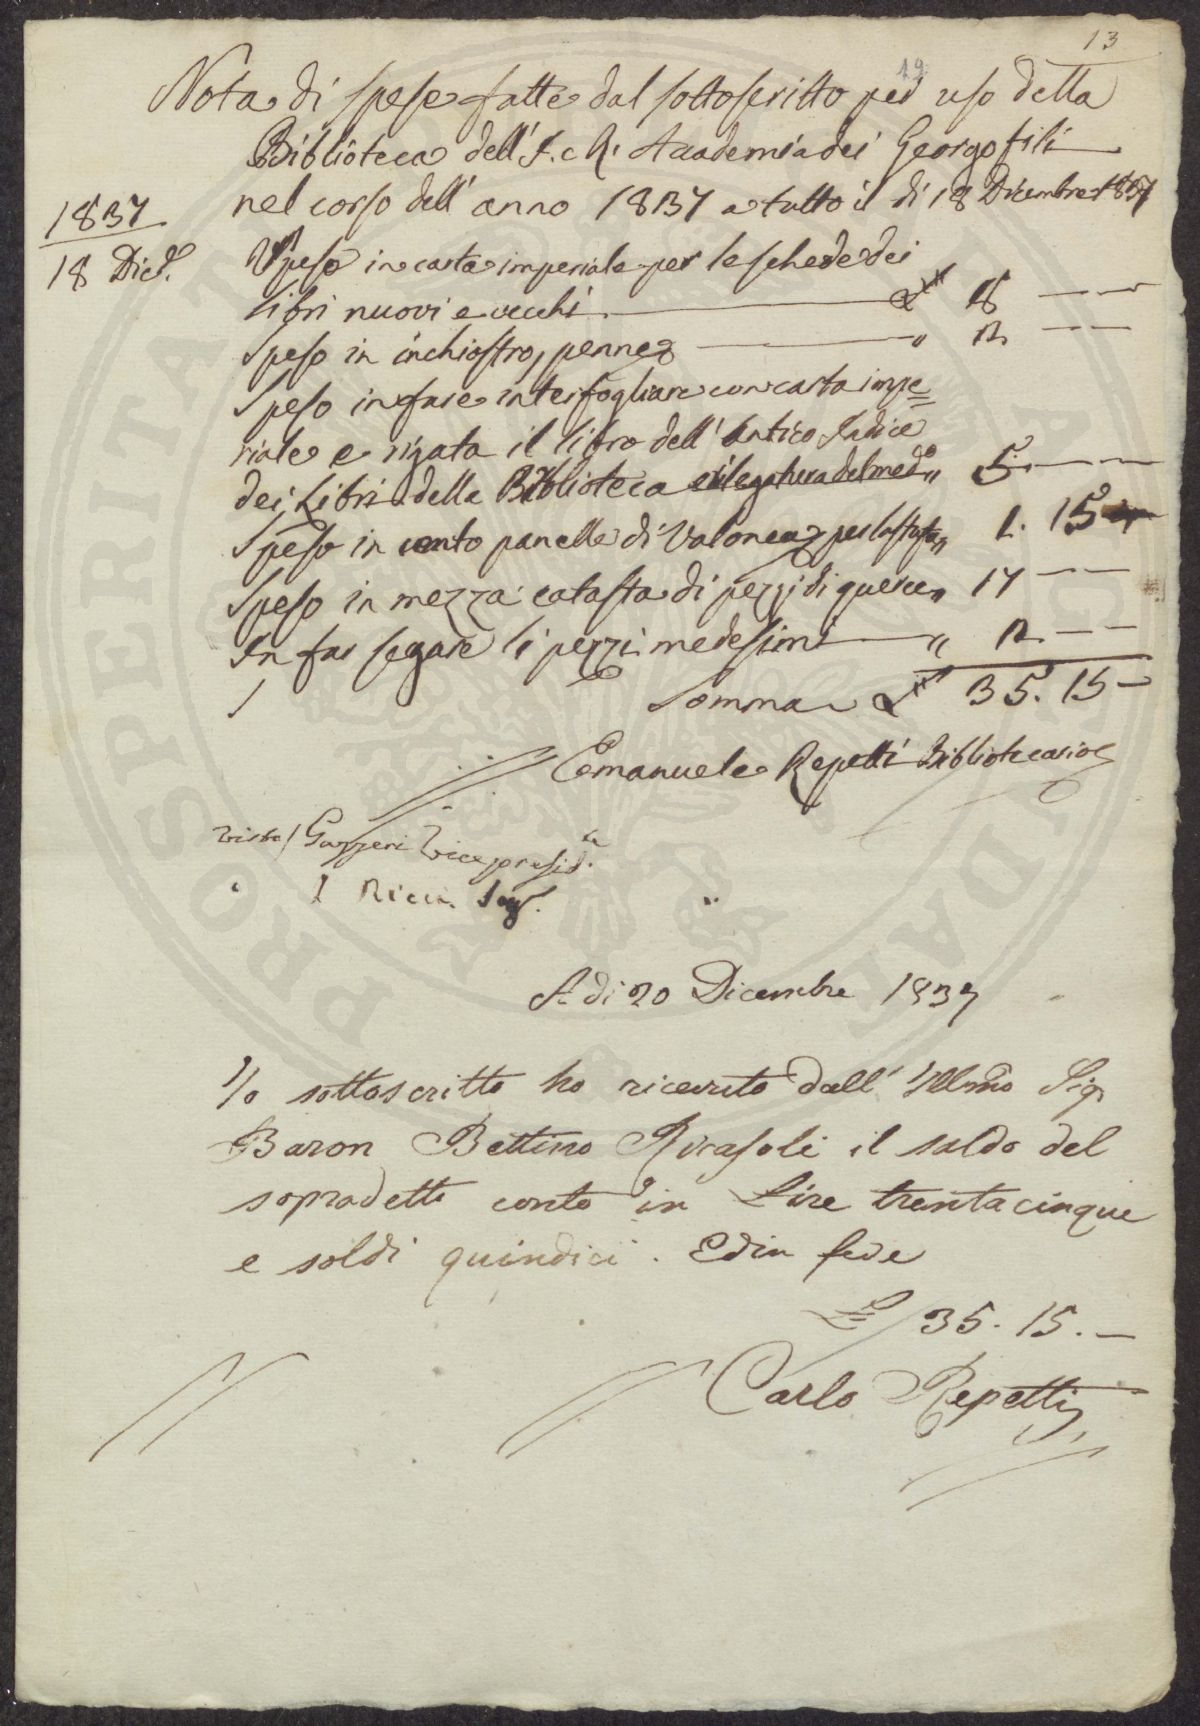 13
19
Nota di spese fatte dal sottoscritto per uso della
Biblioteca dell' I. e R. Accademia dei Georgofili
nel corso dell' anno 1837 a tutto il dì 18 Dicembre 1837
1837
18 Dic.e
Speso in carta imperiale per le schede dei
libri nuovi e vecchi
Speso in inchiostro, penne
Speso in fare interfogliare con carta impe=
riale e rigata il libro dell' Antico Indice
dei Libri della Biblioteca e rilegatura del med.o „ 5. — —
Speso in cento panelle di Valonea per la stufa „ 1. 15
Speso in mezza catasta di pezzi di querce „ 17 — —
In far segare li pezzi medesimi
Somma £ 35. 15 —
Emanuele Repetti Bibliotecario
visto / Gazzeri Vicepresid.te
L Ricci Seg.
A dì 20 Dicembre 1837
Io sottoscritto ho ricevuto dall' Illmo Sig.
Baron Bettino Ricasoli il saldo del
sopradetto conto in Lire trentacinque
e soldi quindici. Ed in fede
£ 35. 15. —
Carlo Repetti
PROSPERITATE